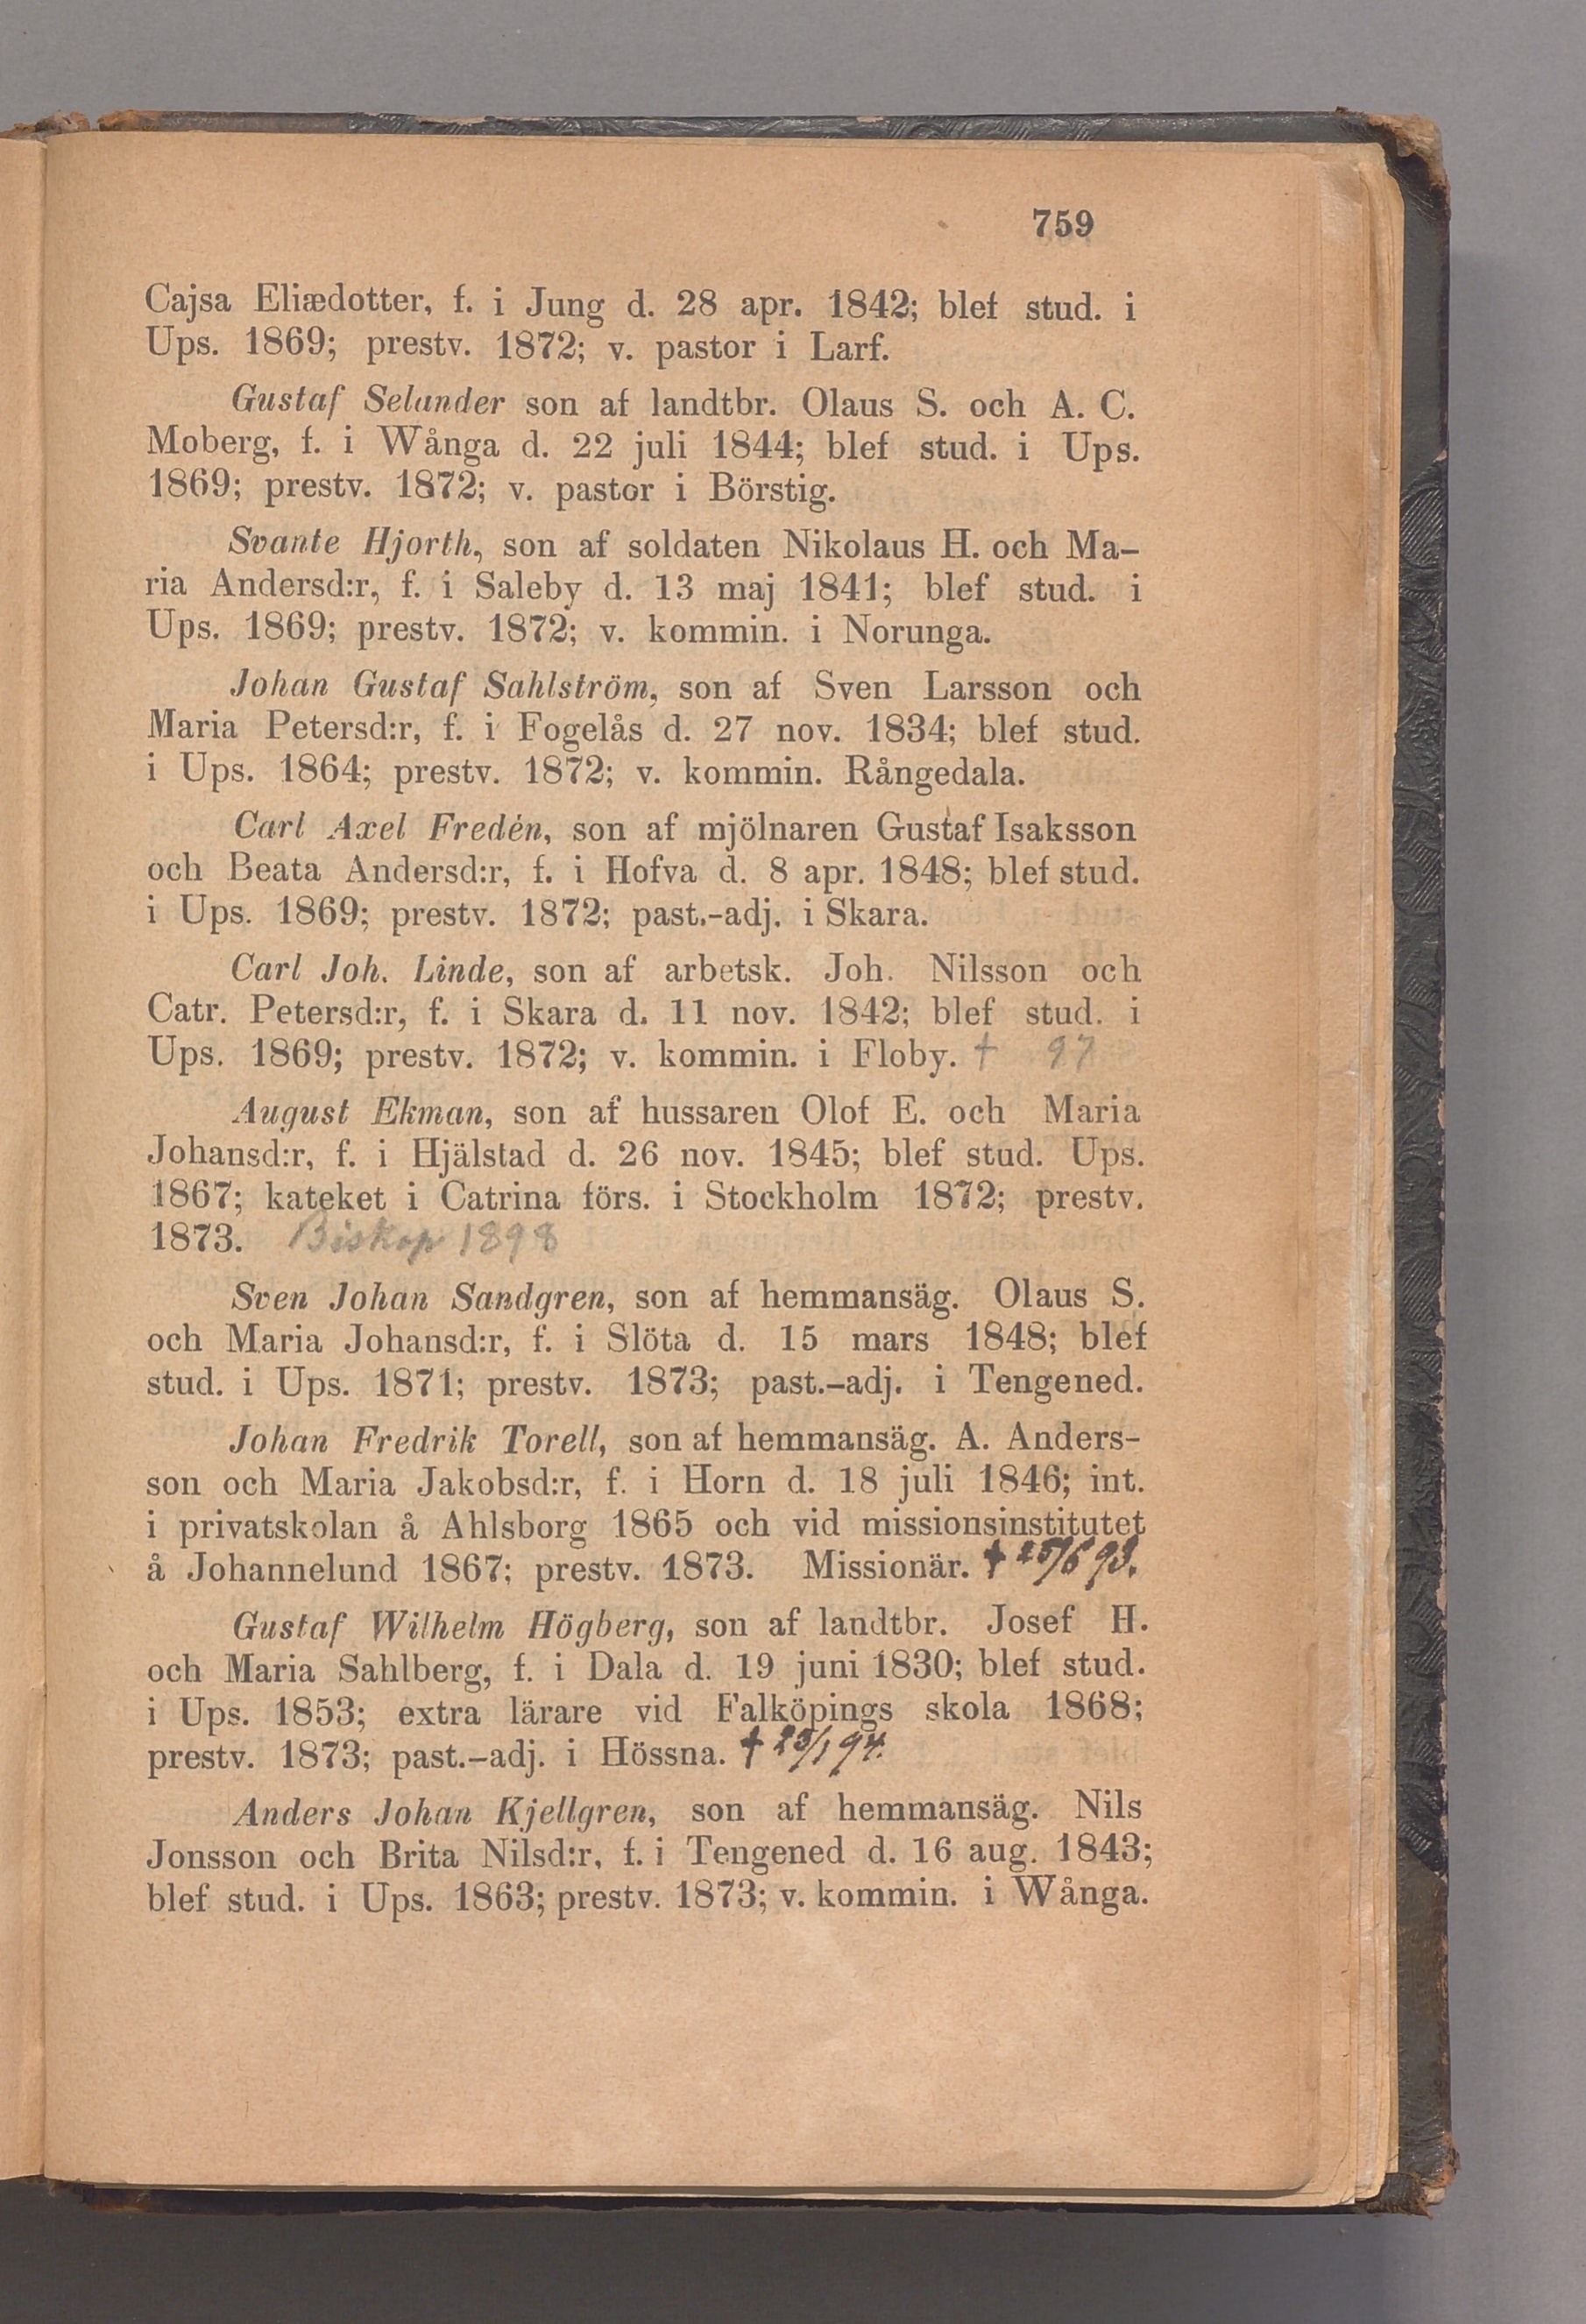 759
Cajsa Eliædotter, f. i Jung d. 28 apr. 1842; blef stud. i
Ups. 1869; prestv. 1872; v. pastor i Larf.
Gustaf Selander son af landtbr. Olaus S. och A. C.
Moberg, f. i Wånga d. 22 juli 1844; blef stud. i Ups.
1869; prestv. 1872; v. pastor i Börstig.
Svante Hjorth, son af soldaten Nikolaus H. och Ma-
ria Andersd:r, f. i Saleby d. 13 maj 1841; blef stud. i
Ups. 1869; prestv. 1872; v. kommin. i Norunga.
Johan Gustaf Sahlström, son af Sven Larsson och
Maria Petersd:r, f. i Fogelås d. 27 nov. 1834; blef stud.
i Ups. 1864; prestv. 1872; v. kommin. Rångedala.
Carl Axel Fredén, son af mjölnaren Gustaf Isaksson
och Beata Andersd:r, f. i Hofva d. 8 apr. 1848; blef stud.
i Ups. 1869; prestv. 1872; past.-adj. i Skara.
Carl Joh. Linde, son af arbetsk. Joh. Nilsson och
Catr. Petersd:r, f. i Skara d. 11 nov. 1842; blef stud. i
Ups. 1869; prestv. 1872; v. kommin. i Floby. † 97
August Ekman, son af hussaren Olof E. och Maria
Johansd:r, f. i Hjälstad d. 26 nov. 1845; blef stud. Ups.
1867; kateket i Catrina förs. i Stockholm 1872; prestv.
1873. Biskop 1898
Sven Johan Sandgren, son af hemmansäg. Olaus S.
och Maria Johansd:r, f. i Slöta d. 15 mars 1848; blef
stud. i Ups. 1871; prestv. 1873; past.-adj. i Tengened.
Johan Fredrik Torell, son af hemmansäg. A. Anders-
son och Maria Jakobsd:r, f. i Horn d. 18 juli 1846; int.
i privatskolan å Ahlsborg 1865 och vid missionsinstitutet
å Johannelund 1867; prestv. 1873. Missionär. †
Gustaf Wilhelm Högberg, son af landtbr. Josef H.
och Maria Sahlberg, f. i Dala d. 19 juni 1830; blef stud.
i Ups. 1853; extra lärare vid Falköpings skola 1868;
prestv. 1873; past.-adj. i Hössna. †
Anders Johan Kjellgren, son af hemmansäg. Nils
Jonsson och Brita Nilsd:r, f. i Tengened d. 16 aug. 1843;
blef stud. i Ups. 1863; prestv. 1873; v. kommin. i Wånga.